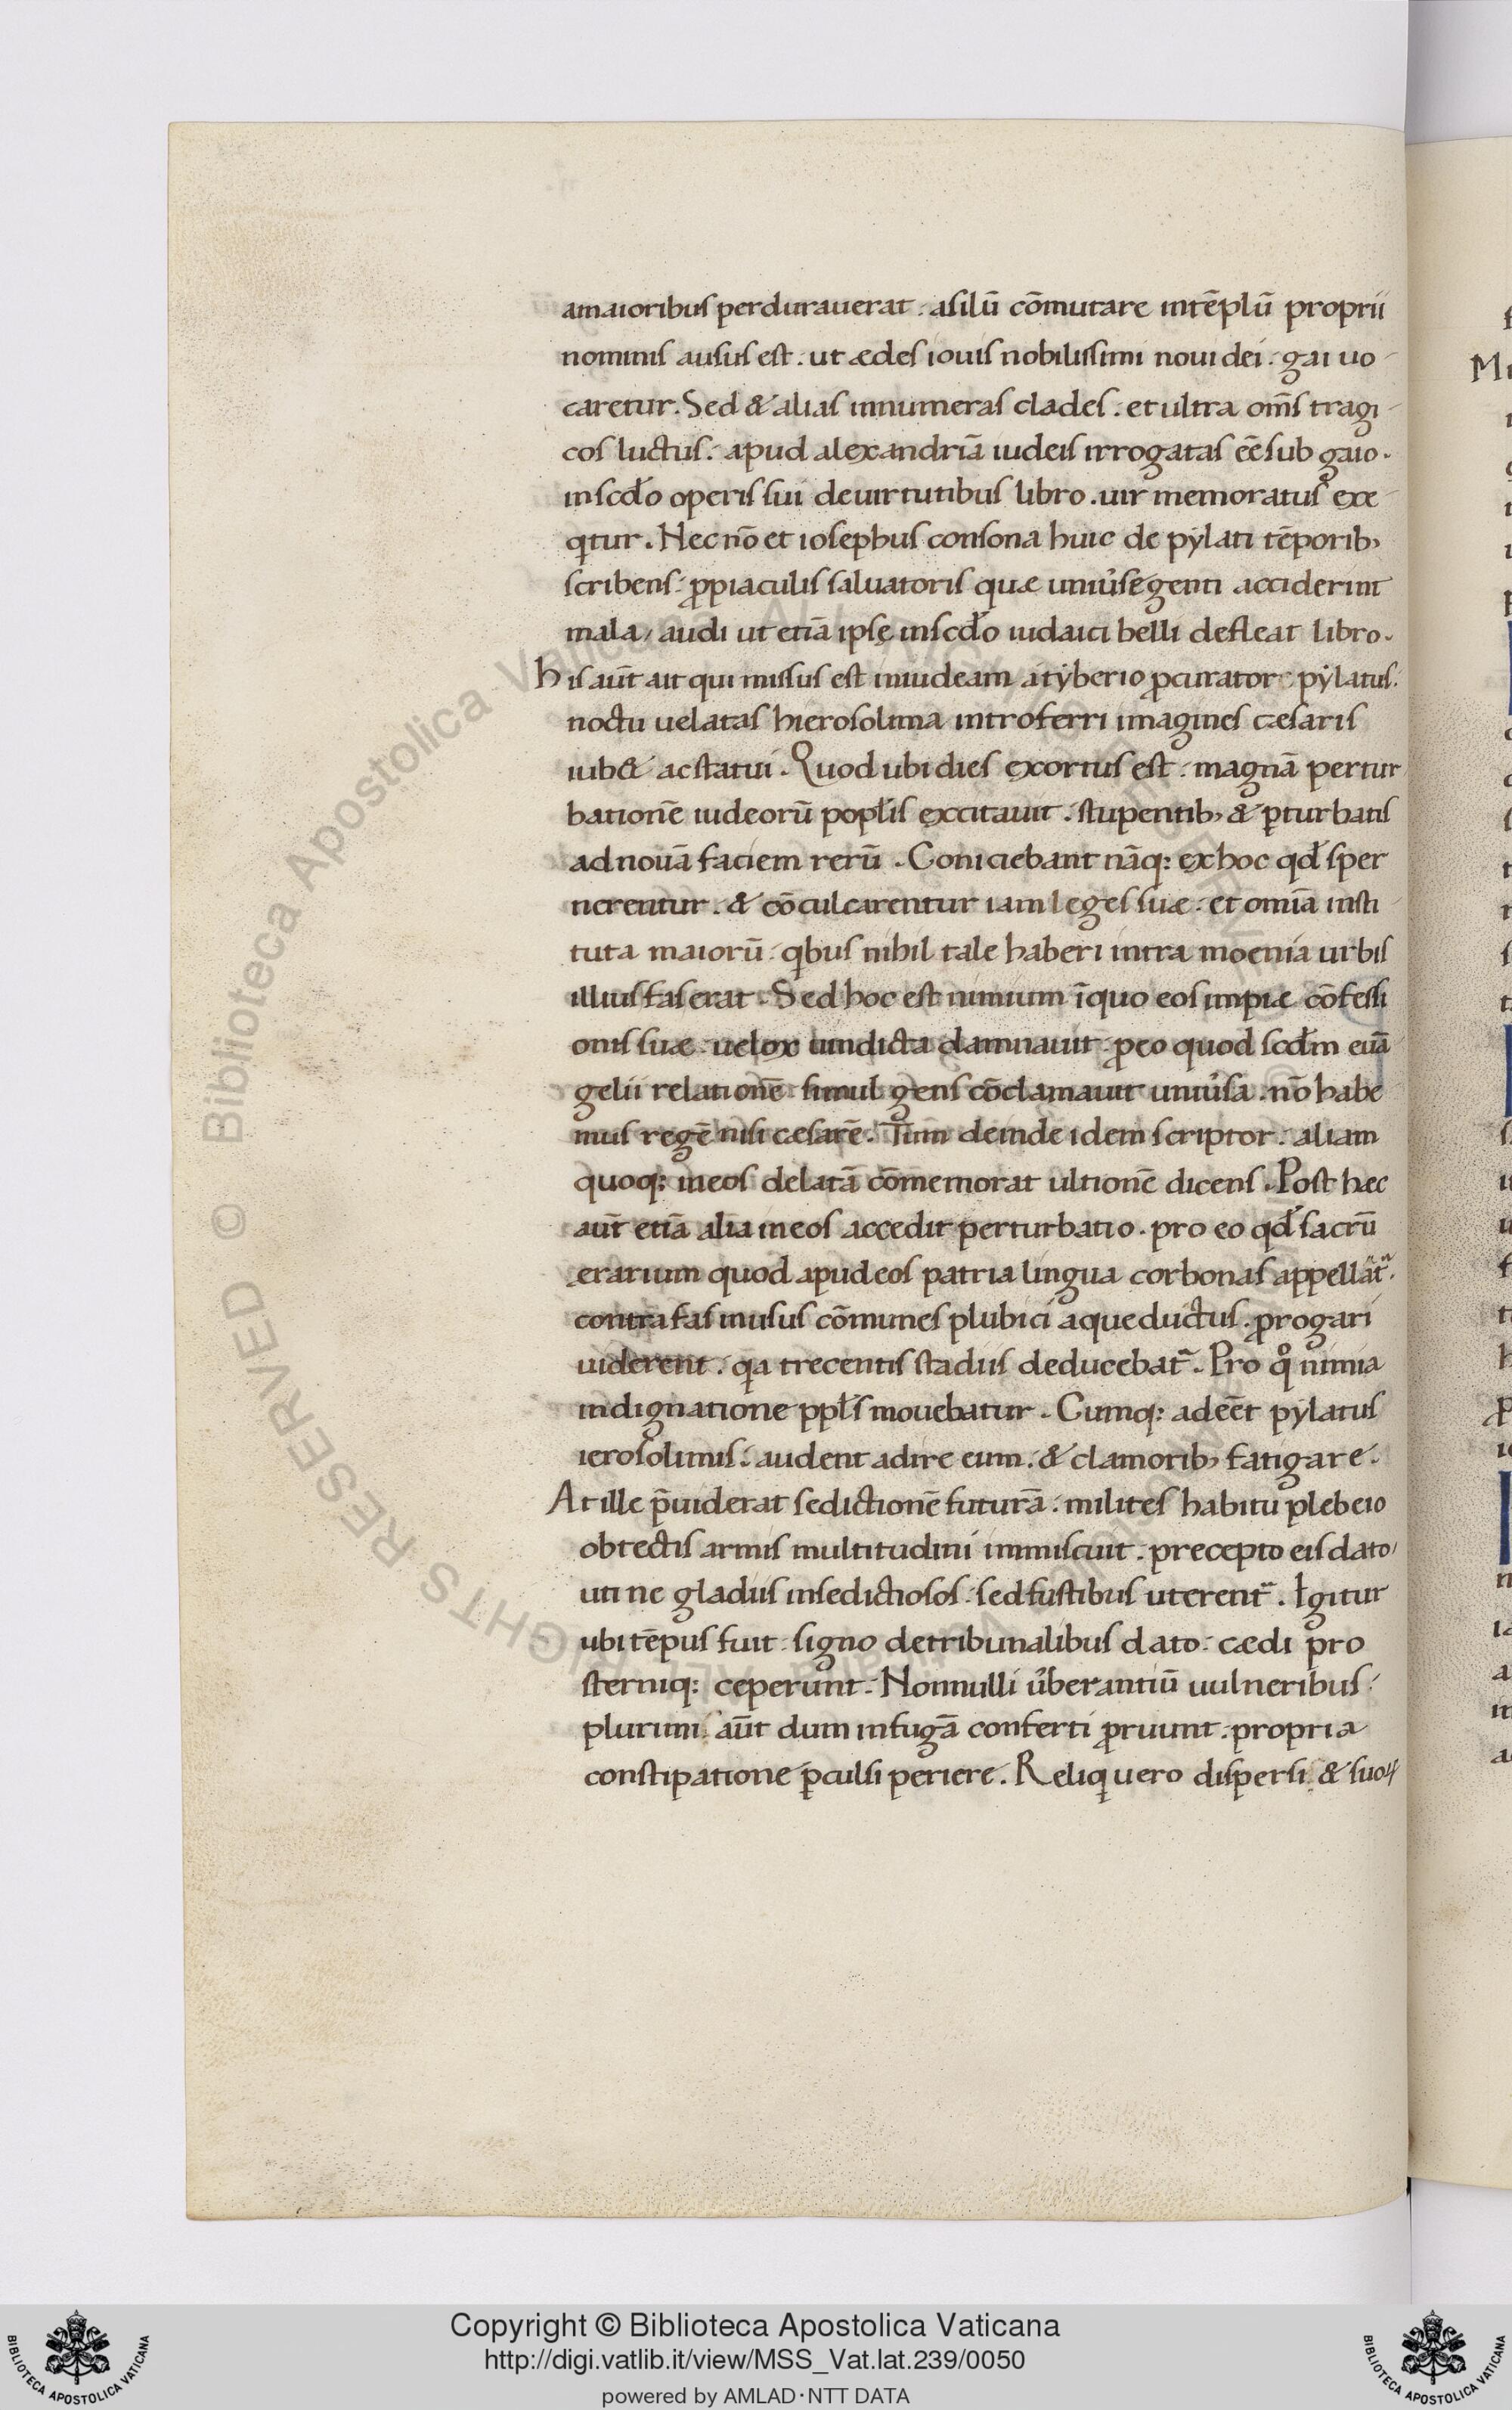 amaioribus perdurauerat . asilū cōmutare intēplū proprii
nominis ausus est . ut ædes iouis nobilissimi noui dei . gai uo-
caretur . Sed & alias innumeras clades . et ultra om̄s tragi-
cos luctus . apud alexandriā iudeis irrogatas eē sub gaio .
inscd̄o operis sui deuirtutibus libro . uir memoratus exe-
qitur . Nec nō et iosephus consona huic de pylati tēporib;
scribens . ꝓpiaculis saluatoris quæ uniu̓se genti acciderint
mala , audi ut etiā ipsę inscd̄o iudaici belli defleat libro .
his aūt ait qui missus est iniudeam a tyberio ꝓcurator pylatus .
noctu uelatas hierosolima introferri imagines cæsaris
iub& ac statui . Quod ubi dies exortus est . magnā pertur
bationē iudeorū popl̄is excitauit . stupentib; & ꝑturbatis
ad nouā faciem rerū . Coniciebant nāq: ex hoc qd̄ sper
nerentur . & cōculcarentur iam leges suæ . et omīa insti-
tuta maiorū . qibus nihil tale haberi intra moenia urbis
illius fas erat . Sed hoc est nimium īquo eos impiæ cōfessi
onis suæ . uelox uindicta damnauit . ꝓeo quod scd̄m euā
gelii relationē . simul gens cōclamauit uniu̓sa . nō habe
mus regē nisi cæsarē . Tum deinde idem scriptor . aliam
quoq: ineos delatā cōmemorat ultionē dicens . Post hæc
aūt etiā alia ineos accedit perturbatio . pro eo qd̄ sacrū
erarium quod apud eos patria lingua corbonas appellat̄ .
contra fas inusus cōmunes plubici aque ductus . ꝓrogari
uiderent . qia trecentis stadiis deducebat̄ . Pro qo nimia
indignatione ppl̄s mouebatur . Cumq: adeēt pylatus
ierosolimis . audent adire eum . & clamorib; fatigare .
At ille p̄uiderat sedictionē futurā . milites habitu plebeio
obtectis armis multitudini immiscuit . precepto eis dato ,
uti ne gladiis insedictiosos . sed fustibus uterent̄ . Igitur
ubi tēpus fuit . signo detribunalibus dato . cædi pro
sterniq: ceperunt . Nonnulli u̓berantiū uulneribus .
plurimi . aūt dum infugā conferti ꝓruunt . propria
constipatione ꝑculsi periere . Reliqi uero dispersi . & suoꝝ
Copyright © Biblioteca Apostolica Vaticana
http://digi.vatlib.it/view/MSS_Vat.lat.239/0050
powered by AMLAD·NTT DATA
BIBLIOTECA APOSTOLICA VATICANA
BIBLIOTECA APOSTOLICA VATICANA
© Biblioteca Apostolica Vaticana ALL RIGHTS RESERVED